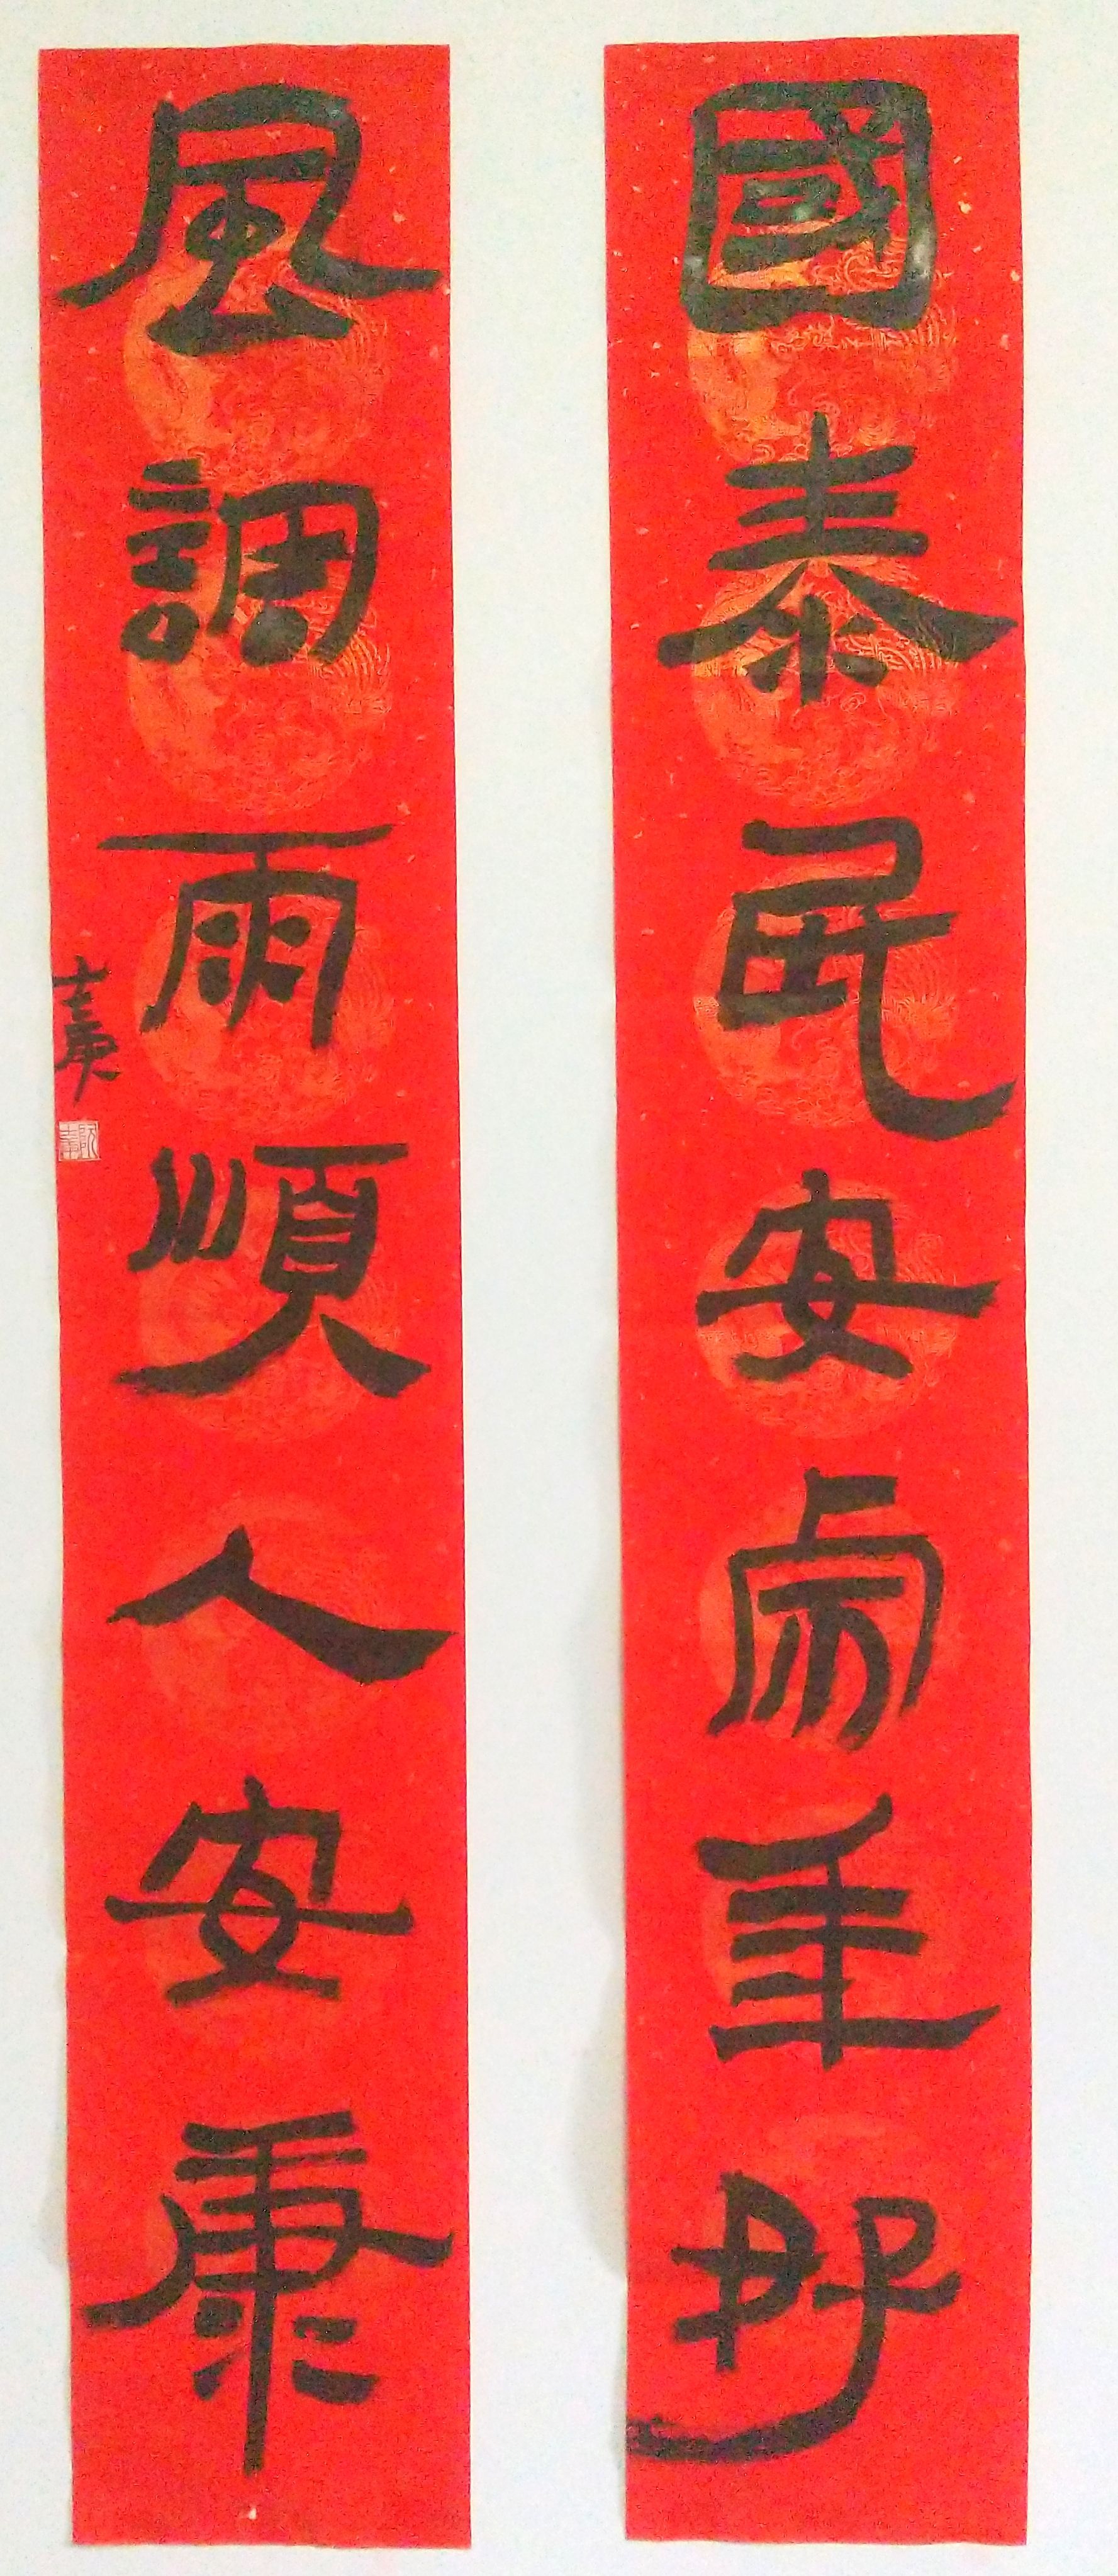 國泰民安虎年好
風調雨順人安康